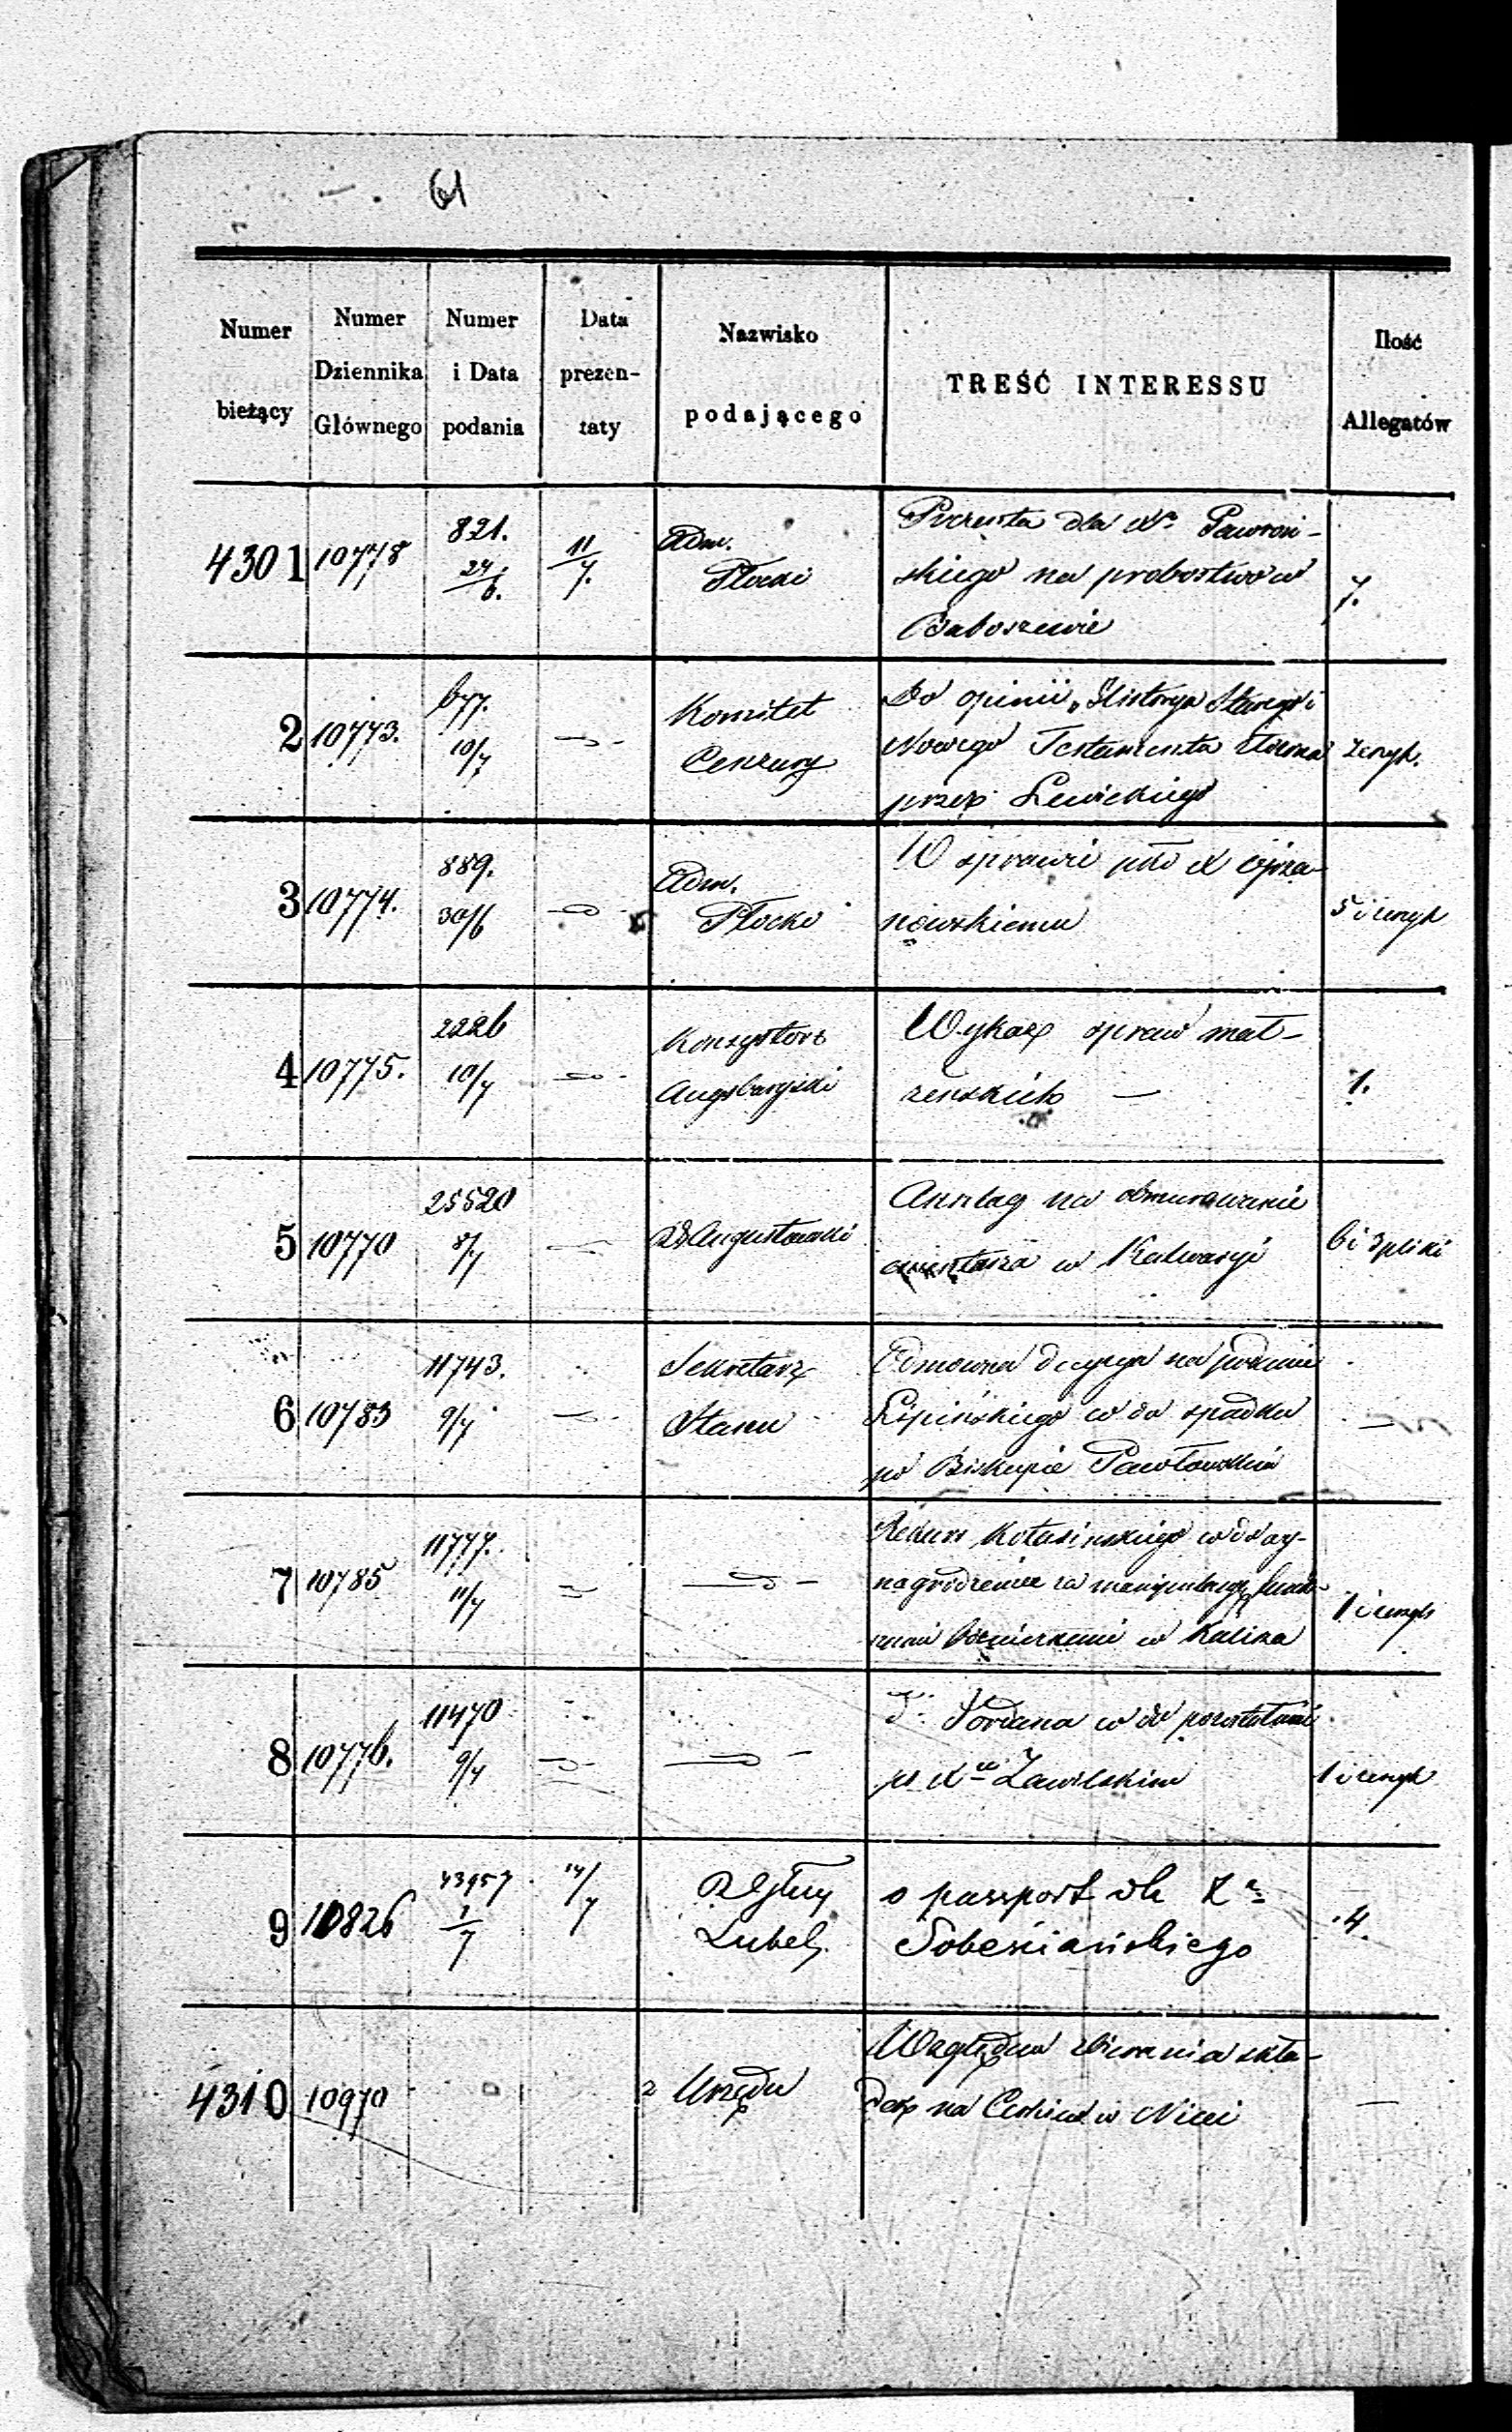 61
Numer bieżący
Numer Dziennika Głównego
Numer i Data podania
Data prezentaty
Nazwisko podającego
TREŚĆ INTERESSU
Ilość Allegatów
4301 10778 821. 24/6. 11/7. Adm. Płocki
Prezenta dla Xa
skiego na probostwo w
Baboszewie
7.
2 10773. 677. 10/7 Komitet Cenzury
Do opinii „Historya Starego i
Nowego Testamentu
przez Lewickiego
zeszyt.
3 10774. 889. 30/6 Adm. Płocki
W sprawie pko X
nowskiemu
5 i zeszyt
4 10775. 2226 10/7 Konsystorz Augsburgski
Wykaz spraw mał-
żeńskich —
1.
5 10770 25520 8/7 RG Augustowski
Anszlag na obmurowanie
cmentarza w Kalwaryi
6 i 3 pliki
6 10783 11743. 9/7 Sekretarz Stanu
Odmowna decyzya na podanie
Lipińskiego w do spadku
po Biskupie Pawłowskim
—
7 10785 11777. 11/7
Rekurs Kotasińskiego w do wy-
nagrodzenia za
w Kalisza
1 i zeszyt
8 10776. 11470 9/7
do Jordana w do pozostałości
po Xu Zawilskim
1 i zeszyt
9 10826 43957 1/7 14/7 Lubels.
o passport dla X
Sobesiańskiego
4.
4310 10970 z Urzędu
Względem zbierania skła-
dek na Cerkiew w Nicei
—